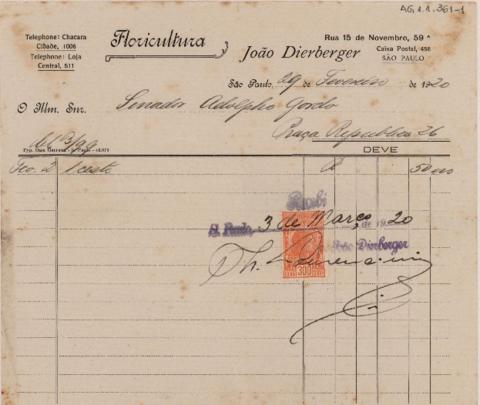 AG.1.1.361-1
Telephone: Chacara
Cidade, 1006
Telephone: Loja
Central, 511
Floricultura
João Dierberger
Rua 15 de Novembro, 59 A
Caixa Postal, 458
SÃO PAULO
São Paulo, 29 de Fevereiro de 1920
O Illm. Snr. Senador Adolpho Gordo
Praça Republica 26
DEVE
Fev. 2 1 cesto
Recibi
S. Paulo, 3 de Março de 1920
João Dierberger
300